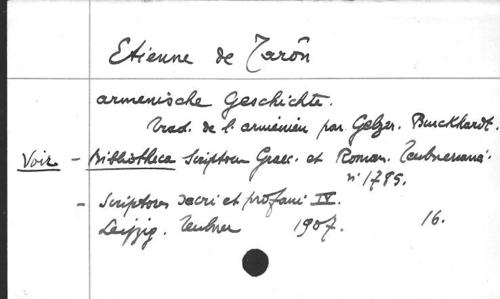 Etienne de Tarôn
armenische Geschichte.
trad. de l'arménien par Gelzer. Burckhardt.
Voir - Bibliotheca Scriptorum Graec. et Roman. Teubneriana.
n° 1785.
- Scriptores sacri et profani IV.
Leipzig. Teubner 1907. 16.